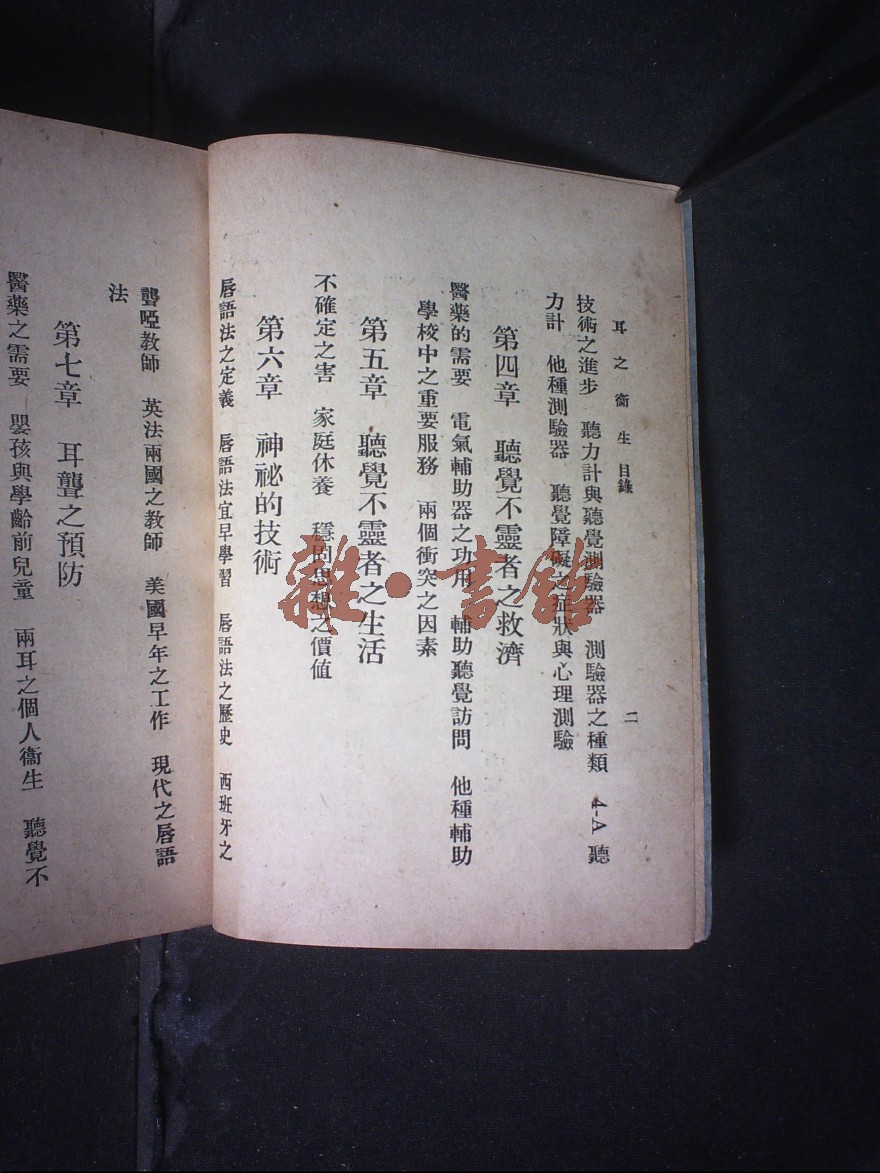 耳之衞生 目錄
二
技術之進步 聽力計與聽覺測驗器 測驗器之種類 4-A 聽
力計 他種測驗器 聽覺障礙之症狀與心理測驗
第四章 聽覺不靈者之救濟
醫藥的需要 電氣輔助器之功用 輔助聽覺訪問 他種輔助
學校中之重要服務 兩個衝突之因素
第五章 聽覺不靈者之生活
不確定之害 家庭休養 穩固思想之價值
第六章 神祕的技術
唇語法之定義 唇語法宜早學習 唇語法之歷史 西班牙之
聾啞教師 英法兩國之教師 美國早年之工作 現代之唇語
法
第七章 耳聾之預防
醫藥之需要 嬰孩與學齡前兒童 兩耳之個人衞生 聽覺不
雜·書館